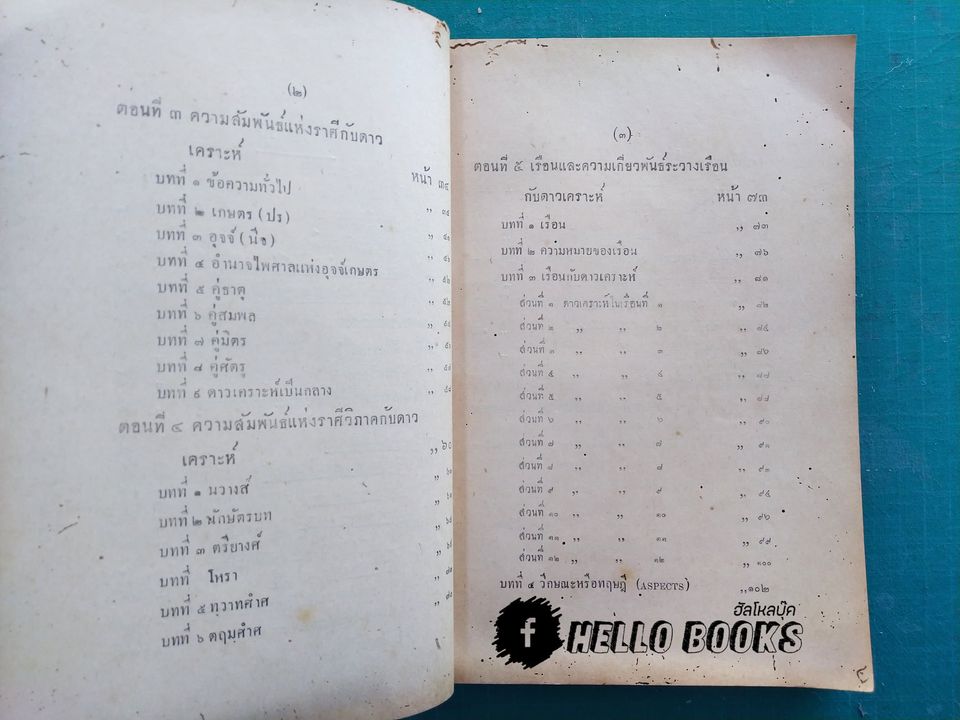 (๒)
ตอนที่ ๓ ความสัมพันธ์แห่งราศีกับดาว
เคราะห์ หน้า ๓๔
บทที่ ๑ ข้อความทั่วไป
บทที่ ๒ เกษตร (ปร) ,,
บทที่ ๓ อุจจ์ (นีจ) ,,
บทที่ ๔ อำนาจไพศาลแห่งอุจจ์เกษตร ,,
บทที่ ๕ คู่ธาตุ ,,
บทที่ ๖ คู่สมพล ,,
บทที่ ๗ คู่มิตร ,,
บทที่ ๘ คู่ศัตรู ,,
บทที่ ๙ ดาวเคราะห์เป็นกลาง ,,
ตอนที่ ๔ ความสัมพันธ์แห่งราศีวิภาคกับดาว
เคราะห์ ,, ๖๐
บทที่ ๑ นวางส์ ,,
บทที่ ๒ นักษัตรบท ,,
บทที่ ๓ ตรียางศ์ ,,
บทที่ โหรา ,,
บทที่ ๕ ทฺวาทศำศ ,,
บทที่ ๖ ตฤมศำศ ,,
(๓)
ตอนที่ ๕ เรือนและความเกี่ยวพันธ์ระวางเรือน
กับดาวเคราะห์ หน้า ๗๓
บทที่ ๑ เรือน ,, ๗๓
บทที่ ๒ ความหมายของเรือน ,, ๗๖
บทที่ ๓ เรือนกับดาวเคราะห์ ,, ๘๑
ส่วนที่ ๑ ดาวเคราะห์ในเรือนที่ ๑ ,, ๘๒
ส่วนที่ ๒ ,, ,, ๒ ,, ๘๔
ส่วนที่ ๓ ,, ,, ๓ ,, ๘๖
ส่วนที่ ๔ ,, ,, ๔ ,, ๘๗
ส่วนที่ ๕ ,, ,, ๕ ,, ๘๘
ส่วนที่ ๖ ,, ,, ๖ ,, ๙๐
ส่วนที่ ๗ ,, ,, ๗ ,, ๙๑
ส่วนที่ ๘ ,, ,, ๘ ,, ๙๓
ส่วนที่ ๙ ,, ,, ๙ ,, ๙๕
ส่วนที่ ๑๐ ,, ,, ๑๐ ,, ๙๖
ส่วนที่ ๑๑ ,, ,, ๑๑ ,, ๙๙
ส่วนที่ ๑๒ ,, ,, ๑๒ ,, ๑๐๐
บทที่ ๔ วีกษณะหรือทฤษฎี (ASPECTS) ,, ๑๐๒
ฮัลโหลบุ๊ค
f HELLO BOOKS